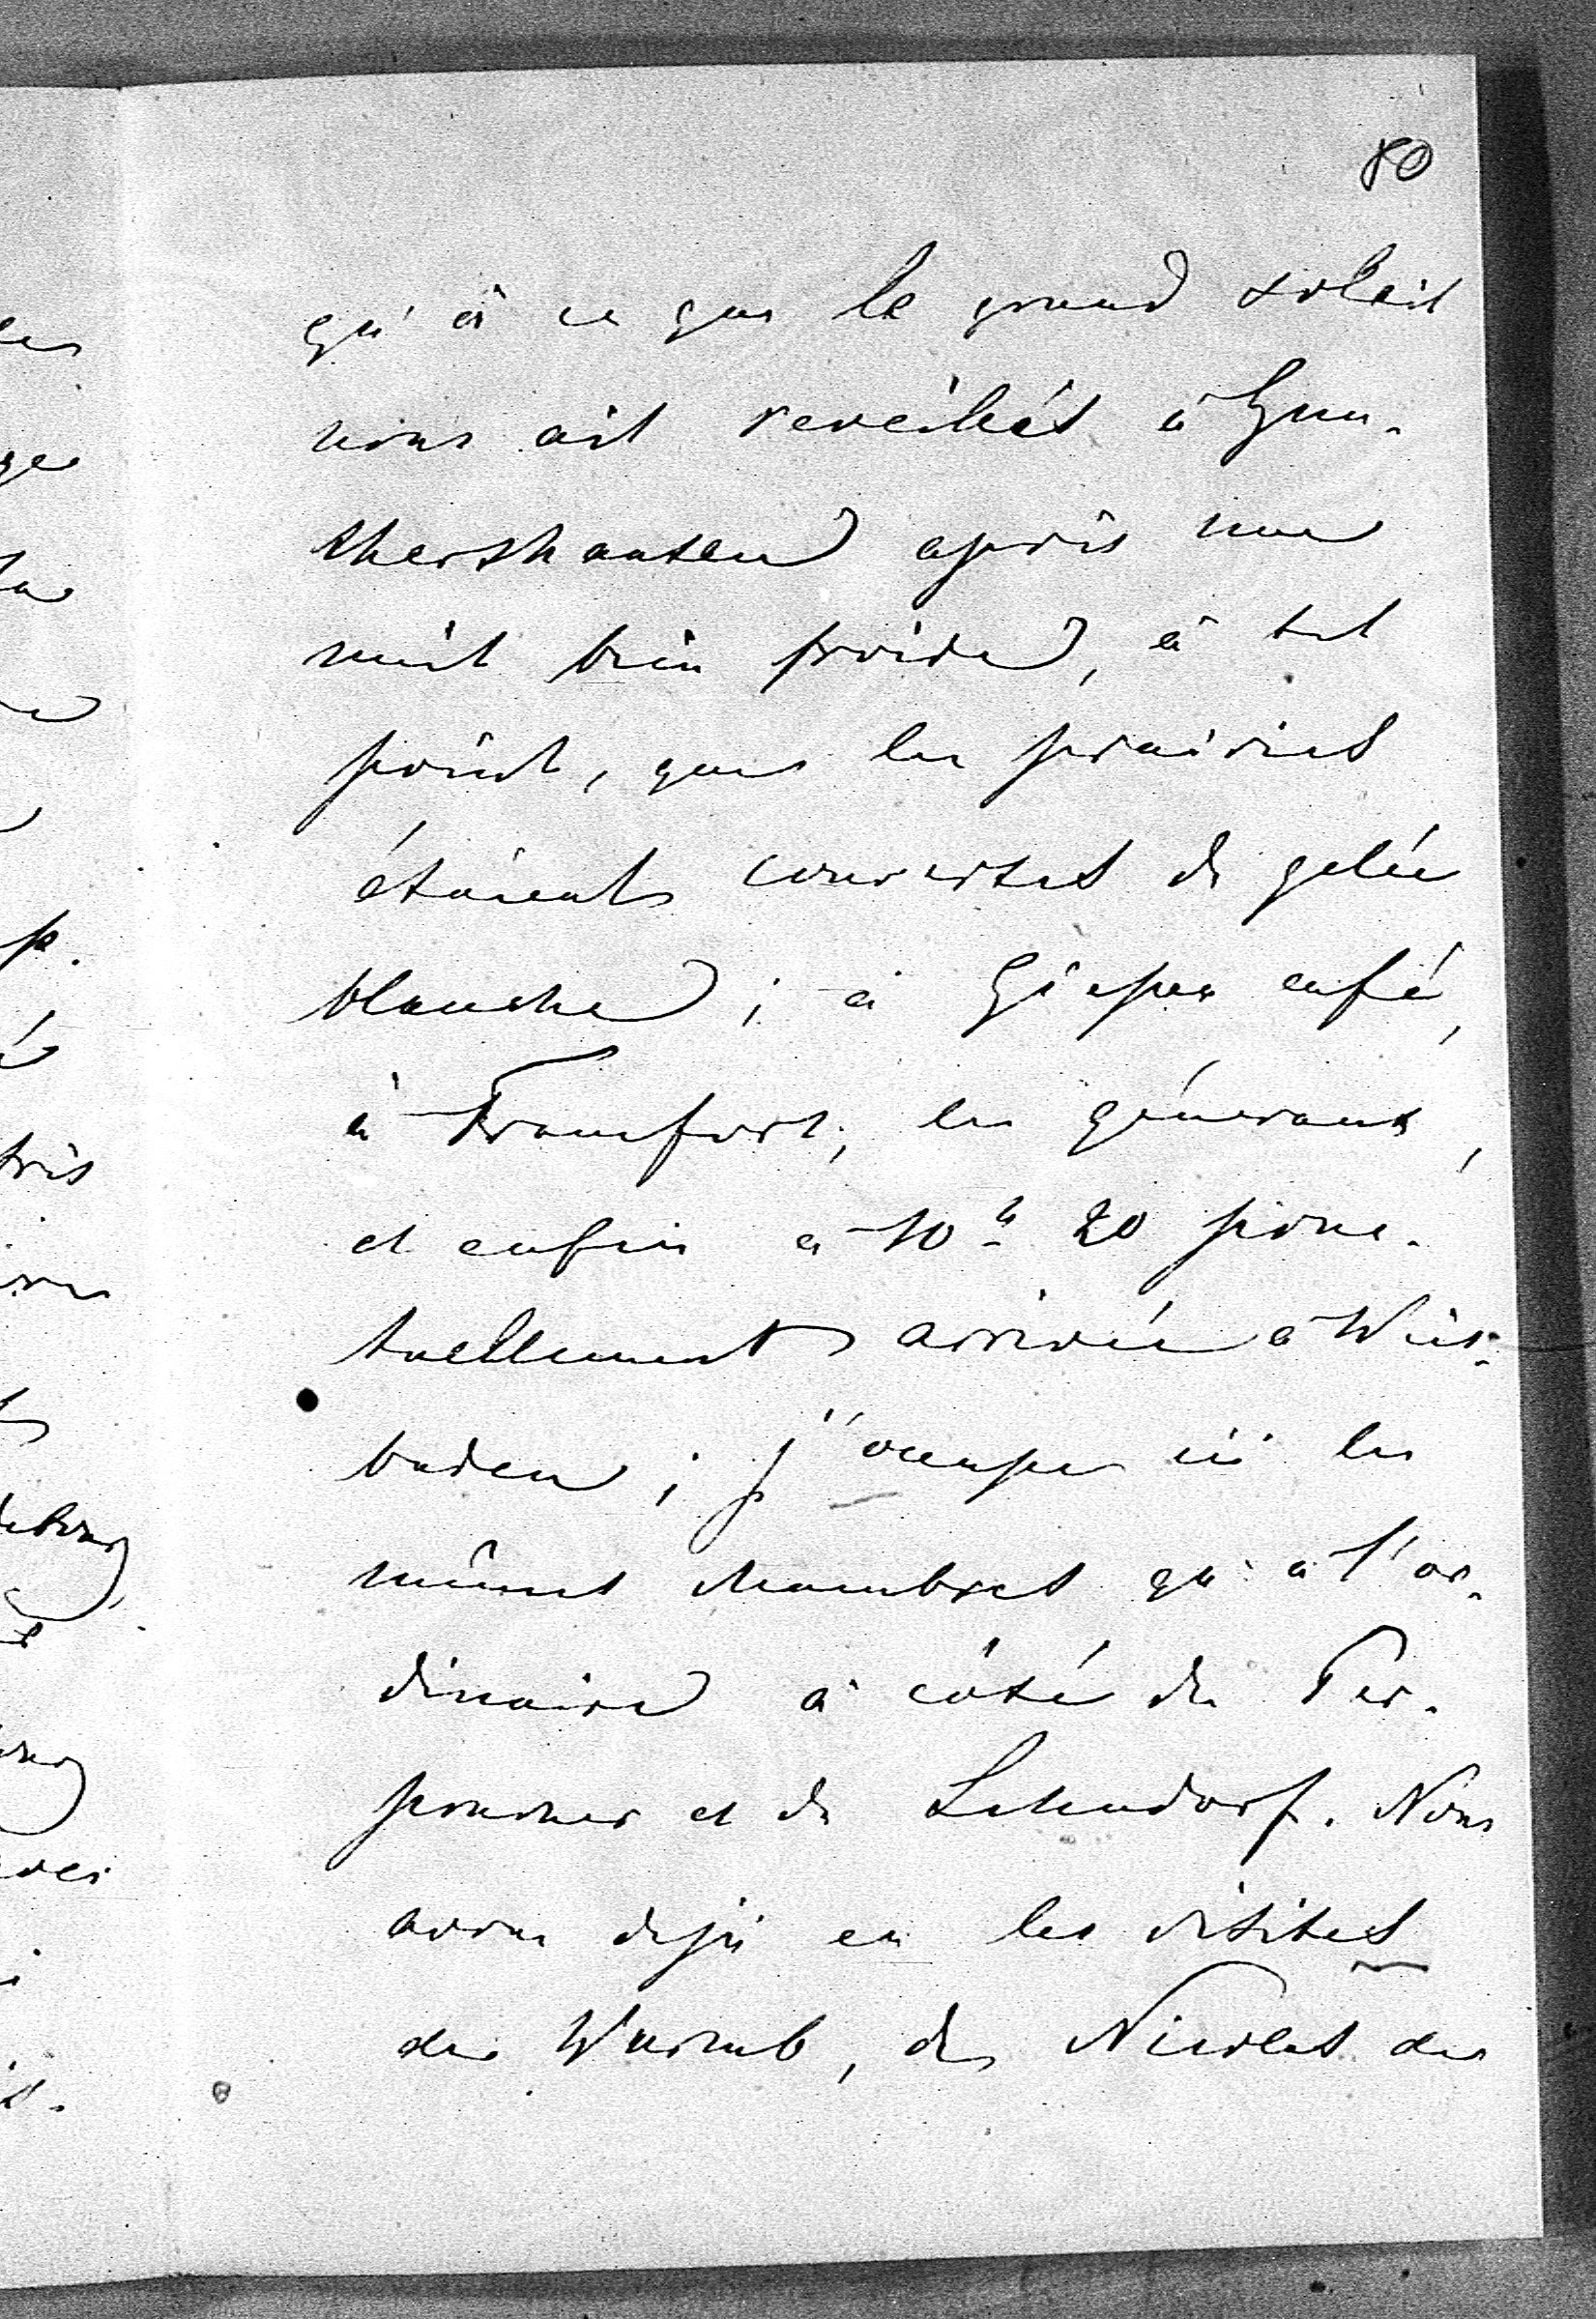 80
qu'à ce que le grand soleil
nous ait reveillés à Gun-
thershausen après une
nuit bien froide, à tel
point, que les prairies
étaient couvertes de gelée
blanche; à Giessen café,
à Francfort, les généraux,
et enfin à 10h 20 ponc-
tuellement arrivée à Wies-
baden; j'occupe ici les
mêmes chambres qu'à l'or-
dinaire à côté de Per-
poncher et de Lehndorf. Nous
avons dejà eu les visites
de Wurmb, de Nicolas de